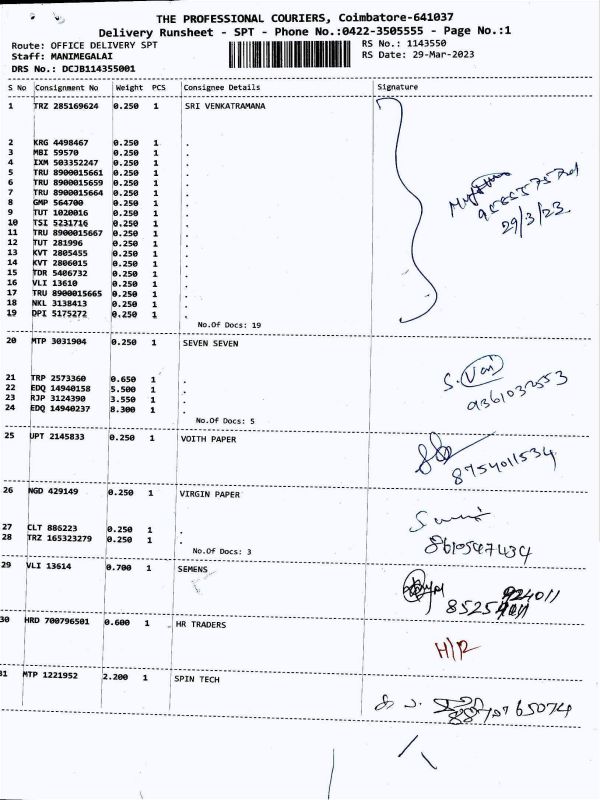 THE PROFESSIONAL COURIERS, Coimbatore-641037
Delivery Runsheet - SPT - Phone No.:0422-3505555 - Page No.:1
Route: OFFICE DELIVERY SPT RS No.: 1143550
Staff: MANIMEGALAI RS Date: 29-Mar-2023
DRS No.: DCJB114355001
S No Consignment No Weight PCS Consignee Details Signature
1 TRZ 285169624 0.250 1 SRI VENKATRAMANA
2 KRG 4498467 0.250 1 .
3 MBI 59570 0.250 1 .
4 IXM 503352247 0.250 1 .
5 TRU 8900015661 0.250 1 .
6 TRU 8900015659 0.250 1 .
7 TRU 8900015664 0.250 1 .
8 GMP 564700 0.250 1 .
9 TUT 1020016 0.250 1 .
10 TSI 5231716 0.250 1 .
11 TRU 8900015667 0.250 1 .
12 TUT 281996 0.250 1 .
13 KVT 2805455 0.250 1 .
14 KVT 2806015 0.250 1 .
15 TDR 5406732 0.250 1 .
16 VLI 13610 0.250 1 .
17 TRU 8900015665 0.250 1 .
18 NKL 3138413 0.250 1 .
19 DPI 5175272 0.250 1 .
29/3/23
No.Of Docs: 19
20 MTP 3031904 0.250 1 SEVEN SEVEN
21 TRP 2573360 0.650 1 .
22 EDQ 14940158 5.500 1 .
23 RJP 3124390 3.550 1 .
24 EDQ 14940237 8.300 1 .
9361032553
No.Of Docs: 5
25 UPT 2145833 0.250 1 VOITH PAPER
8754011534
26 NGD 429149 0.250 1 VIRGIN PAPER
27 CLT 886223 0.250 1 .
28 TRZ 165323279 0.250 1 .
8610547434
No.Of Docs: 3
29 VLI 13614 0.700 1 SEMENS
30 HRD 700796501 0.600 1 HR TRADERS
H/R
31 MTP 1221952 2.200 1 SPIN TECH